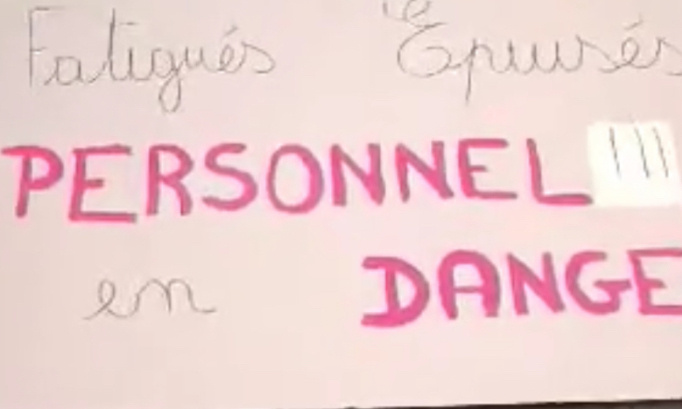 Fatigués Epuisés
PERSONNEL !!!
en DANGE